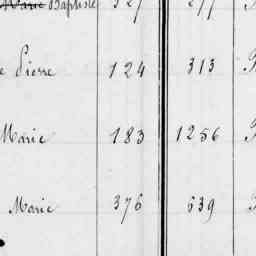 Marie Baptiste 327 277
e Pierre 124 313
Marie 183 1256
Marie 376 639